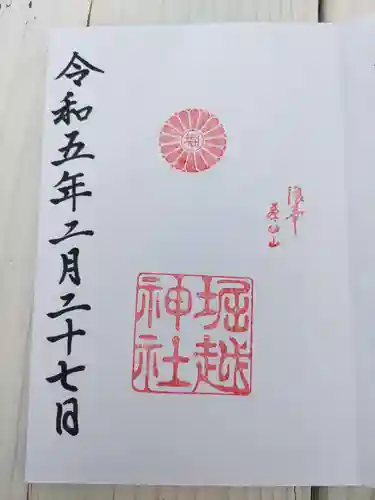 浪華
茶臼山
堀越
神社
令和五年二月二十七日